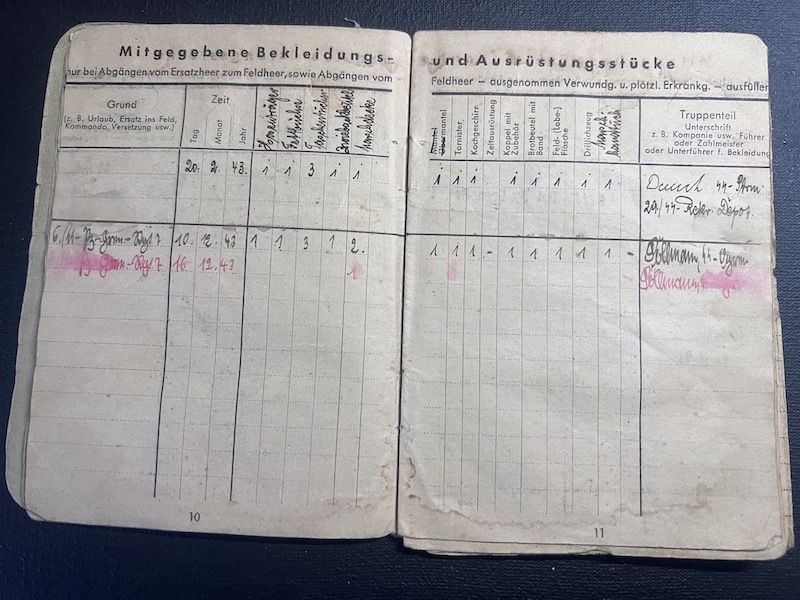 Mitgegebene Bekleidungs-
nur bei Abgängen vom Ersatzheer zum Feldheer, sowie Abgängen vom
Grund
(z. B. Urlaub, Ersatz ins Feld,
Kommando, Versetzung usw.)
Zeit
Tag
Monat
Jahr
Hosenträger
20. 2. 43. 1 1 3 1 1
6./SS-Pz-Gren.-Rgt. 7 10. 12. 43 1 1 3 1 2.
Pz-Gren.-Rgt. 7 16. 12. 43 1
10
und Ausrüstungsstücke
Feldheer — ausgenommen Verwundg. u. plötzl. Erkrankg. — ausfüllen
Mantel
Übermantel
Tornister
Kochgeschirr
Zeltausrüstung
Koppel mit
Zubehör
Brotbeutel mit
Band
Feld- (Labe-)
Flasche
Drillichzeug
Truppenteil
Unterschrift
z. B. Kompanie usw. Führer
oder Zahlmeister
oder Unterführer f. Bekleidung
1 1 1 1 1 1 1 1
SS-
SS-Rekr. Depot.
1 1 1 - 1 1 1 1 1 -
11